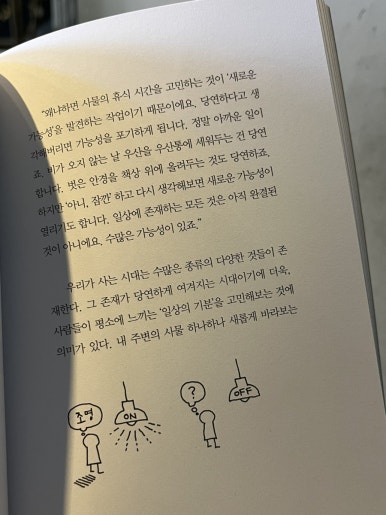 "왜냐하면 사물의 휴식 시간을 고민하는 것이 '새로운
가능성'을 발견하는 작업이기 때문이에요. 당연하다고 생
각해버리면 가능성을 포기하게 됩니다. 정말 아까운 일이
죠. 비가 오지 않는 날 우산을 우산통에 세워두는 건 당연
합니다. 벗은 안경을 책상 위에 올려두는 것도 당연하죠.
하지만 '아니, 잠깐' 하고 다시 생각해보면 새로운 가능성이
열리기도 합니다. 일상에 존재하는 모든 것은 아직 완결된
것이 아니에요. 수많은 가능성이 있죠."
우리가 사는 시대는 수많은 종류의 다양한 것들이 존
재한다. 그 존재가 당연하게 여겨지는 시대이기에 더욱,
사람들이 평소에 느끼는 '일상의 기분'을 고민해보는 것에
의미가 있다. 내 주변의 사물 하나하나 새롭게 바라보는
조명
ON
?
OFF